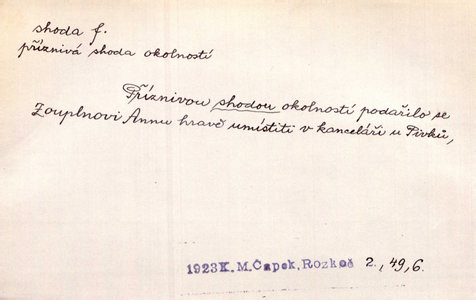 shoda f.
příznivá shoda okolností
Příznivou shodou okolností podařilo se
Zouplnovi Annu hravě umístiti v kanceláři u Pivků,
1923 K. M. Čapek, Rozkoš 2., 49, 6.